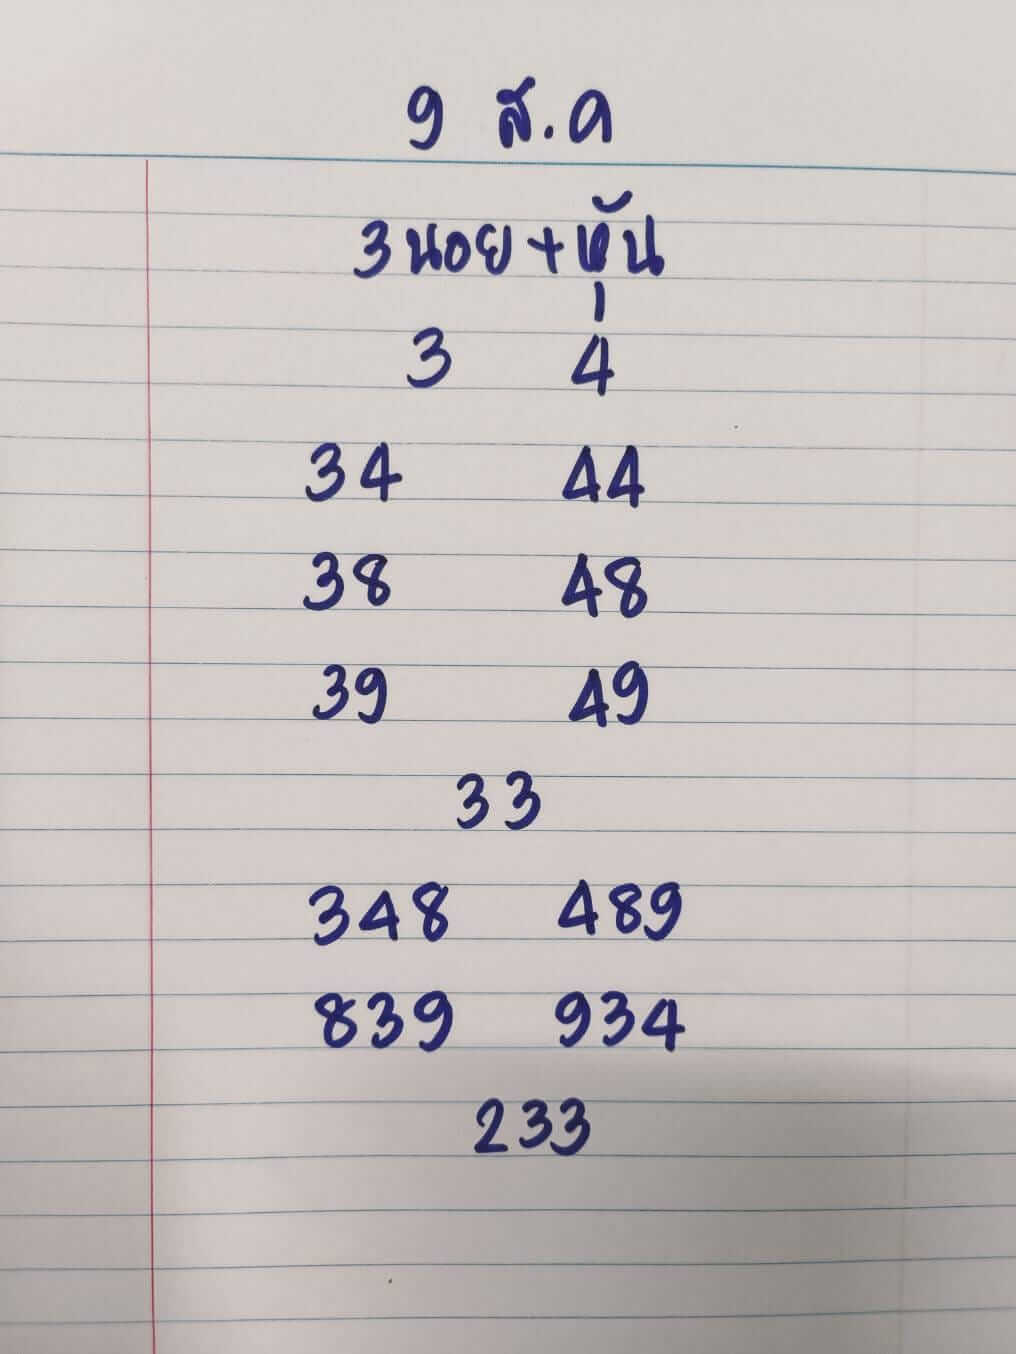 9 ส.ค
3นอย+หุ้น
3 4
34 44
38 48
39 49
33
348 489
839 934
233